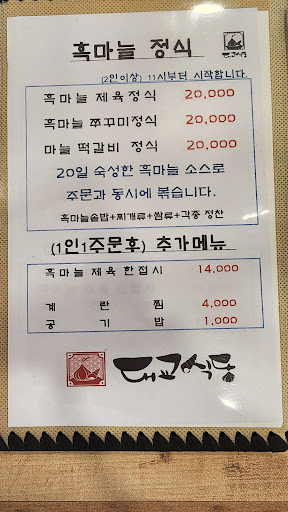 흑마늘 정식
대교식당
(2인이상) 11시부터 시작합니다.
흑마늘 제육정식 20,000
흑마늘 쭈꾸미정식 20,000
마늘 떡갈비 정식 20,000
20일 숙성한 흑마늘 소스로
주문과 동시에 볶습니다.
흑마늘솥밥+찌개류+쌈류+각종 정찬
(1인1주문후) 추가메뉴
흑마늘 제육 한접시 14,000
계 란 찜 4,000
공 기 밥 1,000
대교식당